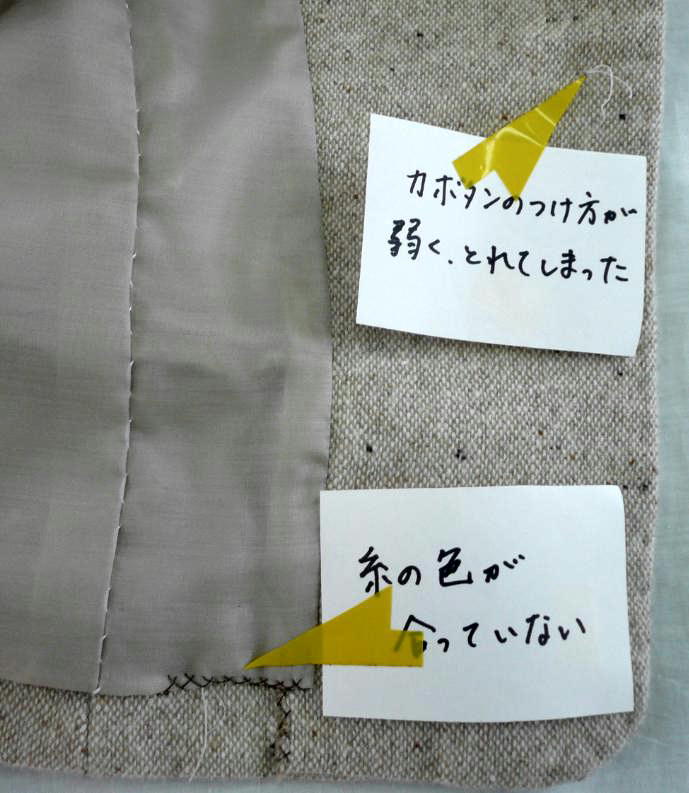 力ボタンのつけ方が
弱く、とれてしまった
糸の色が
合っていない